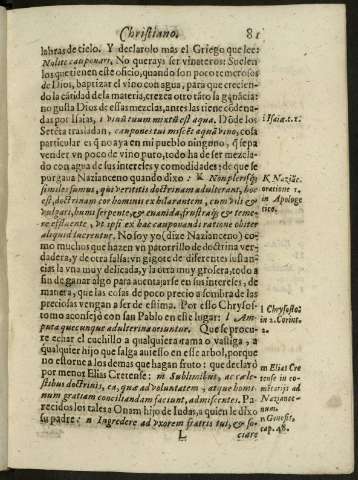 Christiano. 81
labras de cielo. Y declarolo mas el Griego que lee:
Nolite cauponari. No querays ser vinateros: Suelen
los que tienen este oficio, quando son poco temerosos
de Dios, baptizar el vino con agua, para que creciendo
la cantidad de la materia, crezca otro tãto la ganãcia:
no gusta Dios de essas mezclas, antes las tiene cõdena-
das por Isaias, i vinũ tuum mixtũ est aqua. Dõde los
Setẽta trasladan, caupones tui miscẽt aquã vino, cosa
particular es q̃ no aya en mi pueblo ninguno, q̃ sepa
vender vn poco de vino puro, todo ha de ser mezcla-
do con agua de sus intereses y comodidades: de que se
purgaua Nazianceno quando dixo: K Non plerisq́;
similes sumus, qui veritatis doctrinam adulterant, hoc
est, doctrinam cor hominis exhilarantem, cum vili &
vulgari, humi serpente, & euanida, frustraq́; & teme-
re effluente, vt ipsi ex hac cauponandi ratione obiter
aliquid lucrentur. No soy yo (dize Nazianceno) co-
mo muchos que hazen vn patorrillo de doctrina ver-
dadera, y de otra falsa: vn gigote de diferentes sustan-
cias la vna muy delicada, y la otra muy grosera, todo a
fin de ganar algo para auentajarse en sus intereses, de
manera, que las cosas de poco precio a sombra de las
preciosas vengan a ser de estima. Por esso Chrysos-
tomo aconsejò con san Pablo en este lugar: l Am-
puta quecunque adulterina oriuntur. Que se procu-
re echar el cuchillo a qualquiera rama o vastiga, a
qualquier hijo que salga auiesso en esse arbol, porque
no estorue a los demas que hagan fruto: que declarò
por menor Elias Cretense: m Sublimibus, ac cæle-
stibus doctrinis, ea, quæ ad voluntatem, atque homi-
num gratiam conciliandam faciunt, admiscentes. Pa-
recidos los tales a Onam hijo de Iudas, a quien le dixo
su padre: n Ingredere ad vxorem fratris tui, & so-
L ciare
i Isaiæ. c. 1.
K Naziãc.
oratione 1.
in Apologe
tico.
l Chrysosto.
in 2. Corint.
2.
m Elias Cre
tense in co-
mẽtarijs ad
Naziance-
num.
n Genesis,
cap. 48.